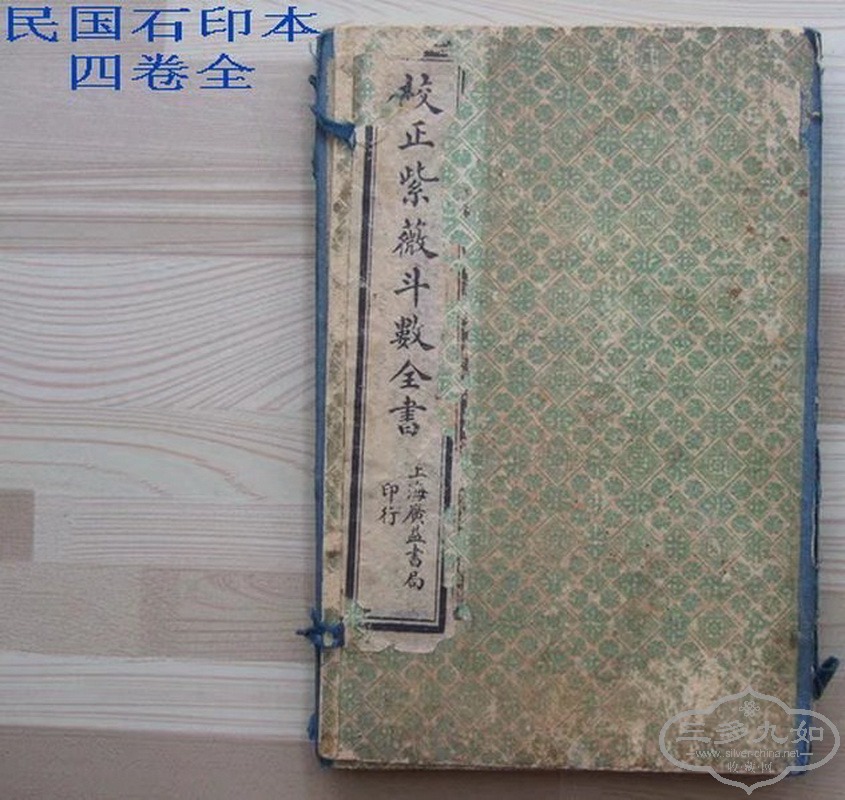 民国石印本
四卷全
校正紫薇斗數全書
上海廣益書局
印行
三多九如
www.silverchina.net
收·藏·网